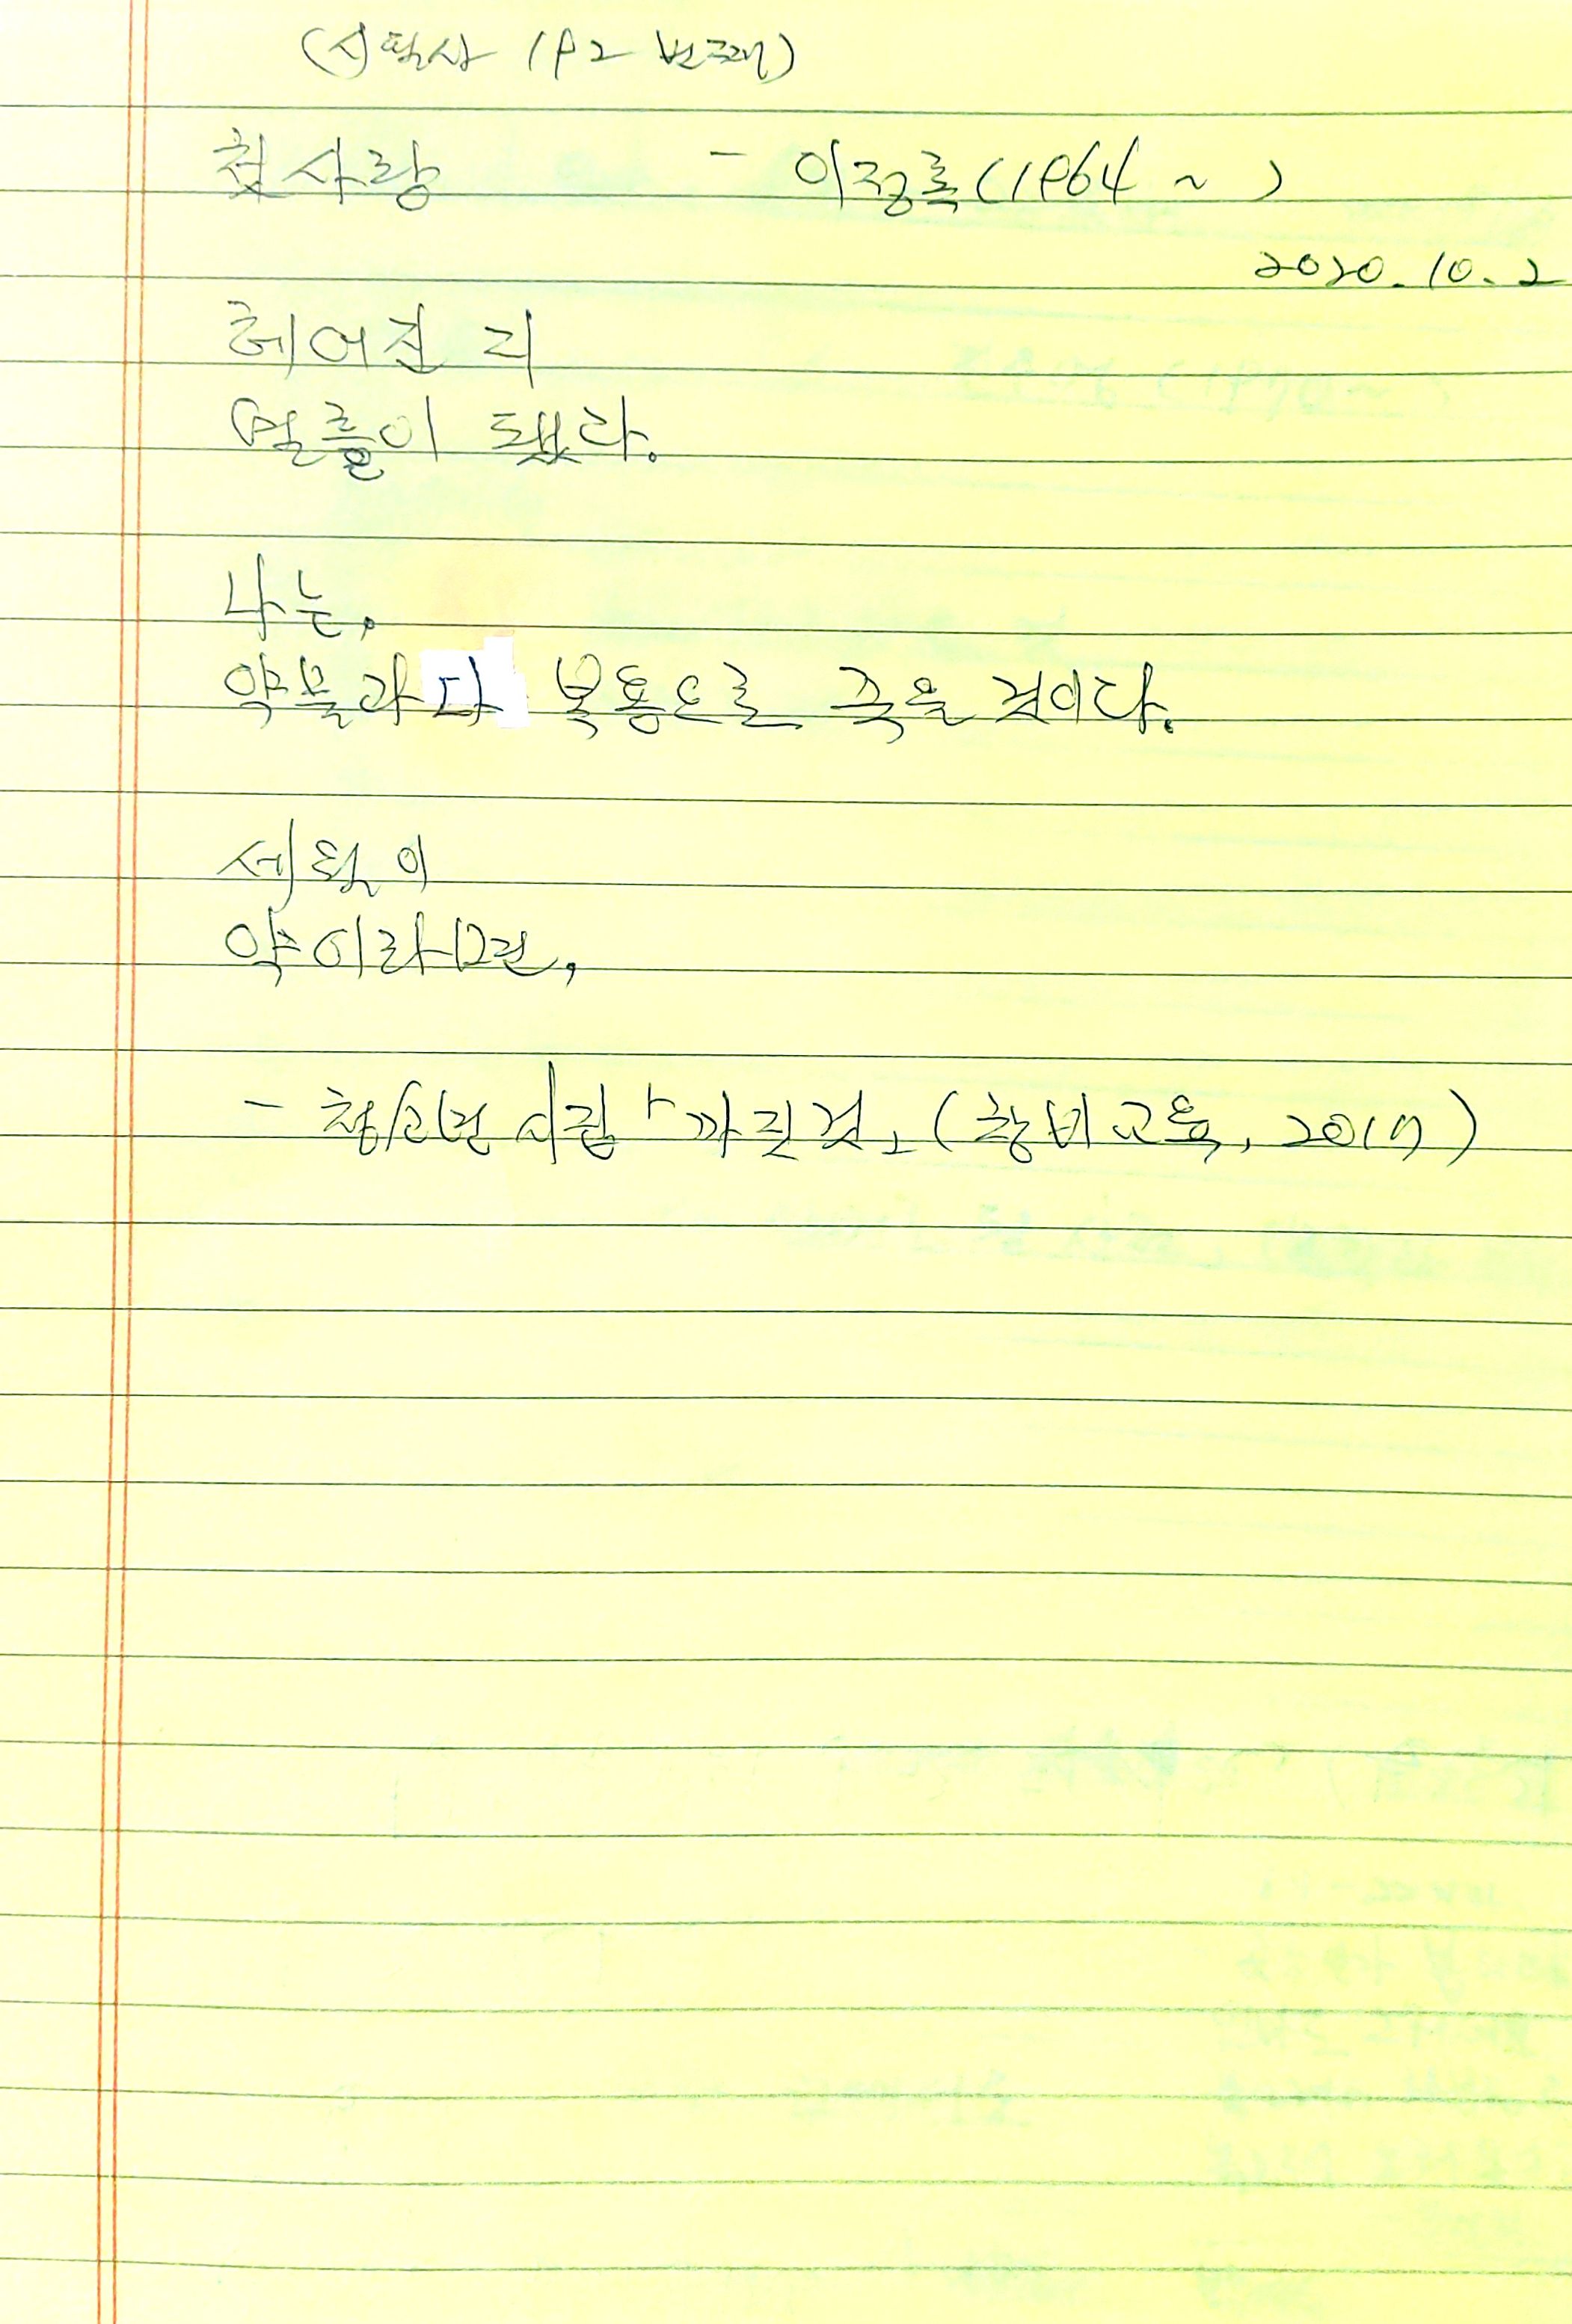 (시필사 192 번째)
첫사랑 - 이정록(1964 ~ )
2020. 10. 2
헤어진 지
열흘이 됐다.
나는,
약물과다 복용으로 죽을 것이다.
세월이
약이라면,
- 청소년 시집 「까짓것」(창비교육, 2017)